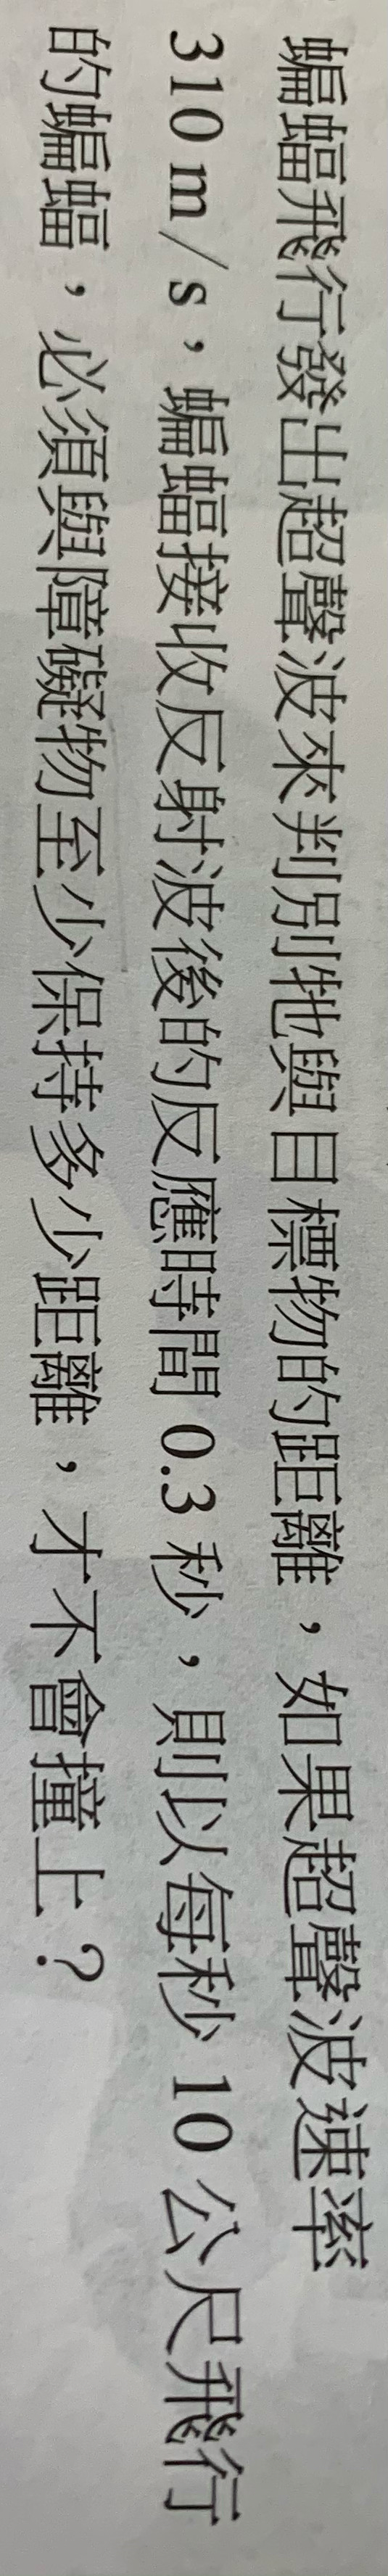 蝙蝠飛行發出超聲波來判別牠與目標物的距離，如果超聲波速率
310 m/s，蝙蝠接收反射波後的反應時間 0.3 秒，則以每秒 10 公尺飛行
的蝙蝠，必須與障礙物至少保持多少距離，才不會撞上？